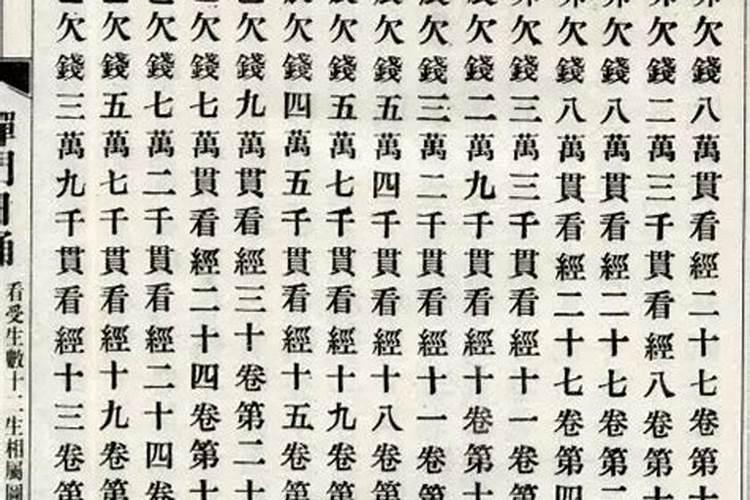 欠錢八萬貫看經二十七卷第十
欠錢二萬三千貫看經八卷第十
欠錢八萬貫看經二十七卷第二
欠錢八萬貫看經二十七卷第四
欠錢三萬三千貫看經十一卷第
欠錢二萬九千貫看經十卷第十
欠錢三萬二千貫看經十一卷第
欠錢五萬四千貫看經十八卷第
欠錢五萬七千貫看經十九卷第
欠錢四萬五千貫看經十五卷第
欠錢九萬貫看經三十卷第二十
欠錢七萬貫看經二十四卷第十
欠錢七萬二千貫看經二十四卷
欠錢五萬七千貫看經十九卷第
欠錢三萬九千貫看經十三卷第
禪門日誦
看受生數十二生相屬圖